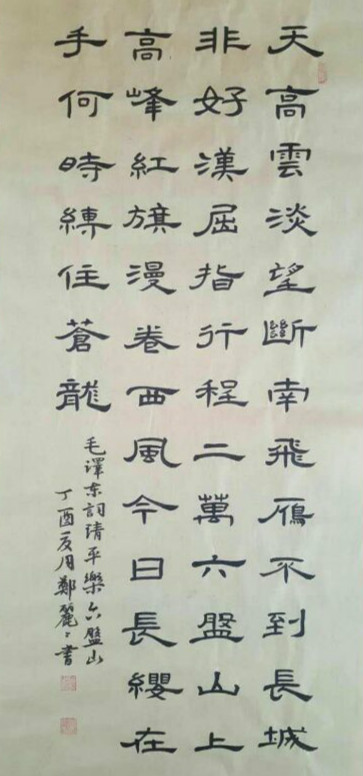 天高雲淡望斷南飛雁不到長城
非好漢屈指行程二萬六盤山上
高峰紅旗漫卷西風今日長纓在
手何時縛住蒼龍
毛澤东詞清平樂六盤山
丁酉夏月鄭麗〻書